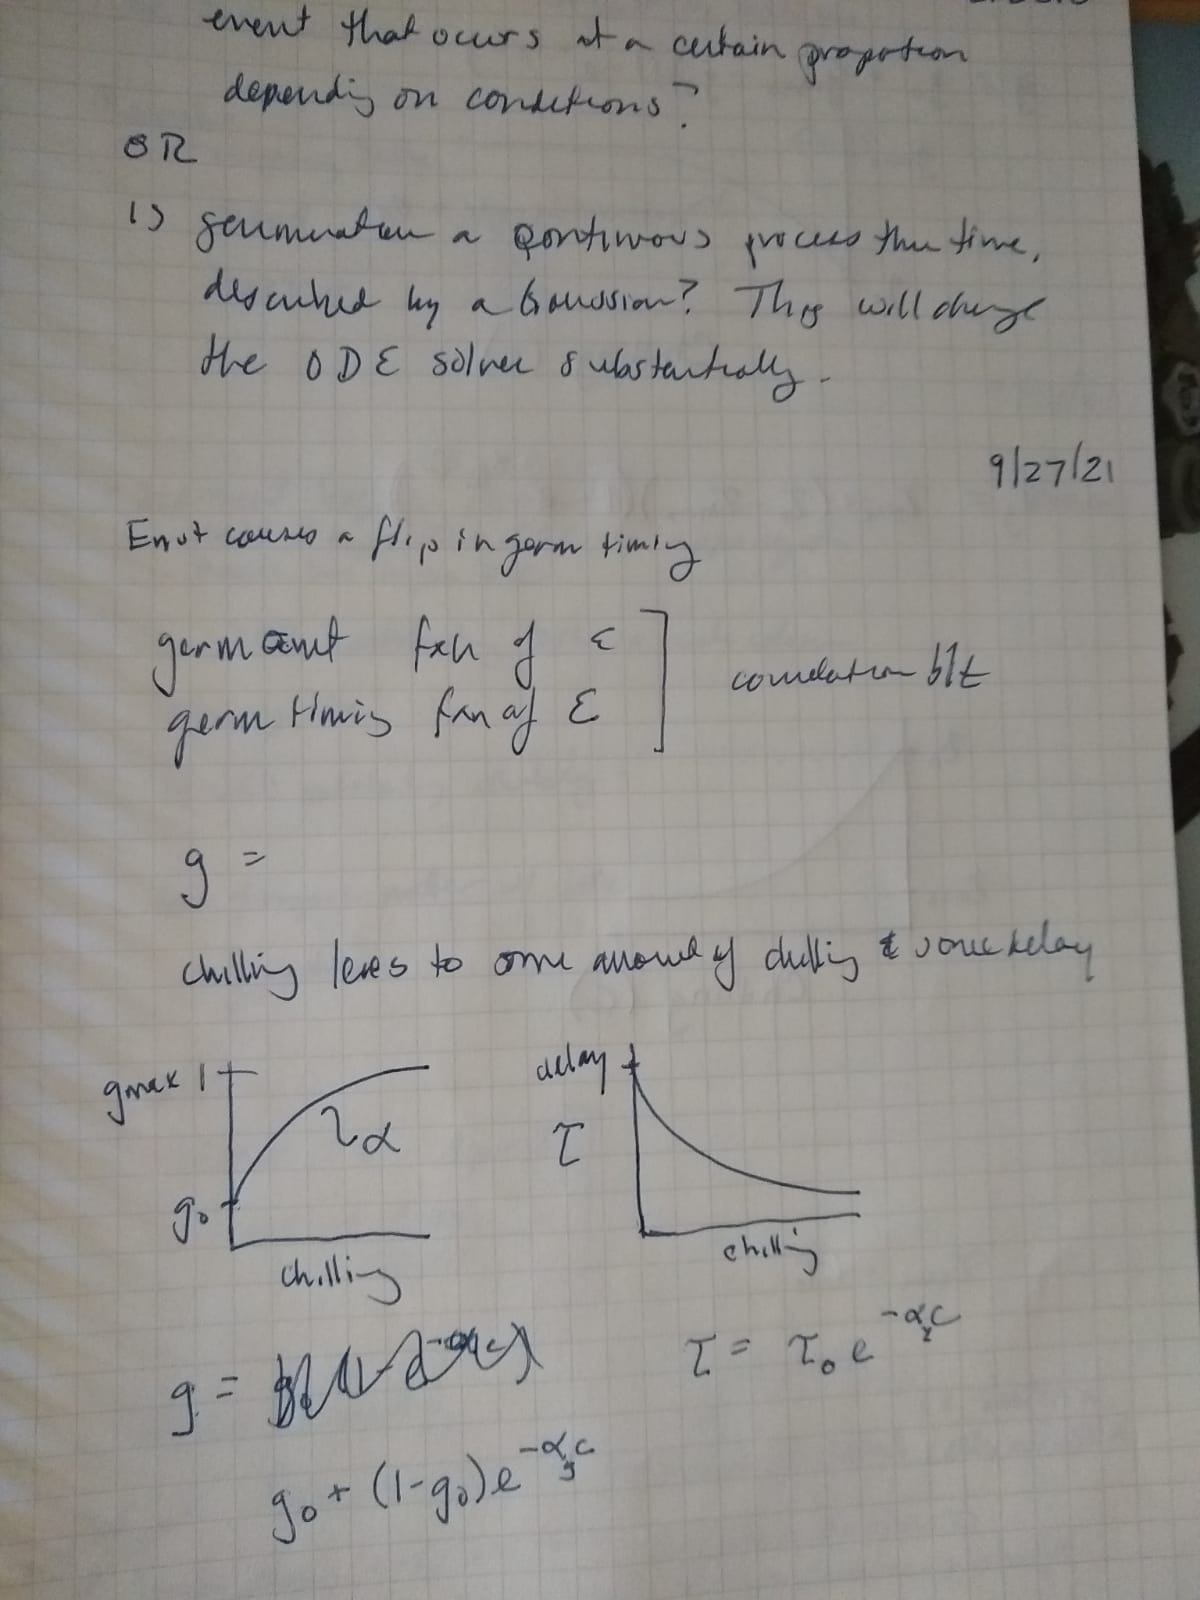 event that occurs at a certain proportion
depending on conditions?
OR
is germination a continuous process thru time,
described by a Gaussian? This will change
the ODE solver substantially.
9/27/21
causes a flip in germ timing
germ amt fxn of ε
germ timing fxn of ε
correlation b/t
g =
chilling to some amount of chilling & some delay
gmax 1
α
g₀
chilling
delay
τ
chilling
g =
τ = τ₀ e^{-α_τ c}
g₀ + (1-g₀)e^{-α_g c}